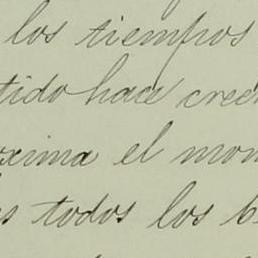 los tiempos
tido hace cree
xima el mom
s todos los b